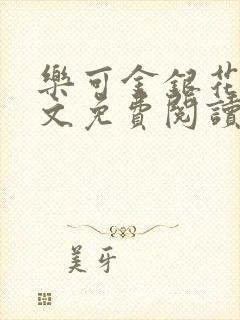 樂可金銀花
文免費閱讀
美牙